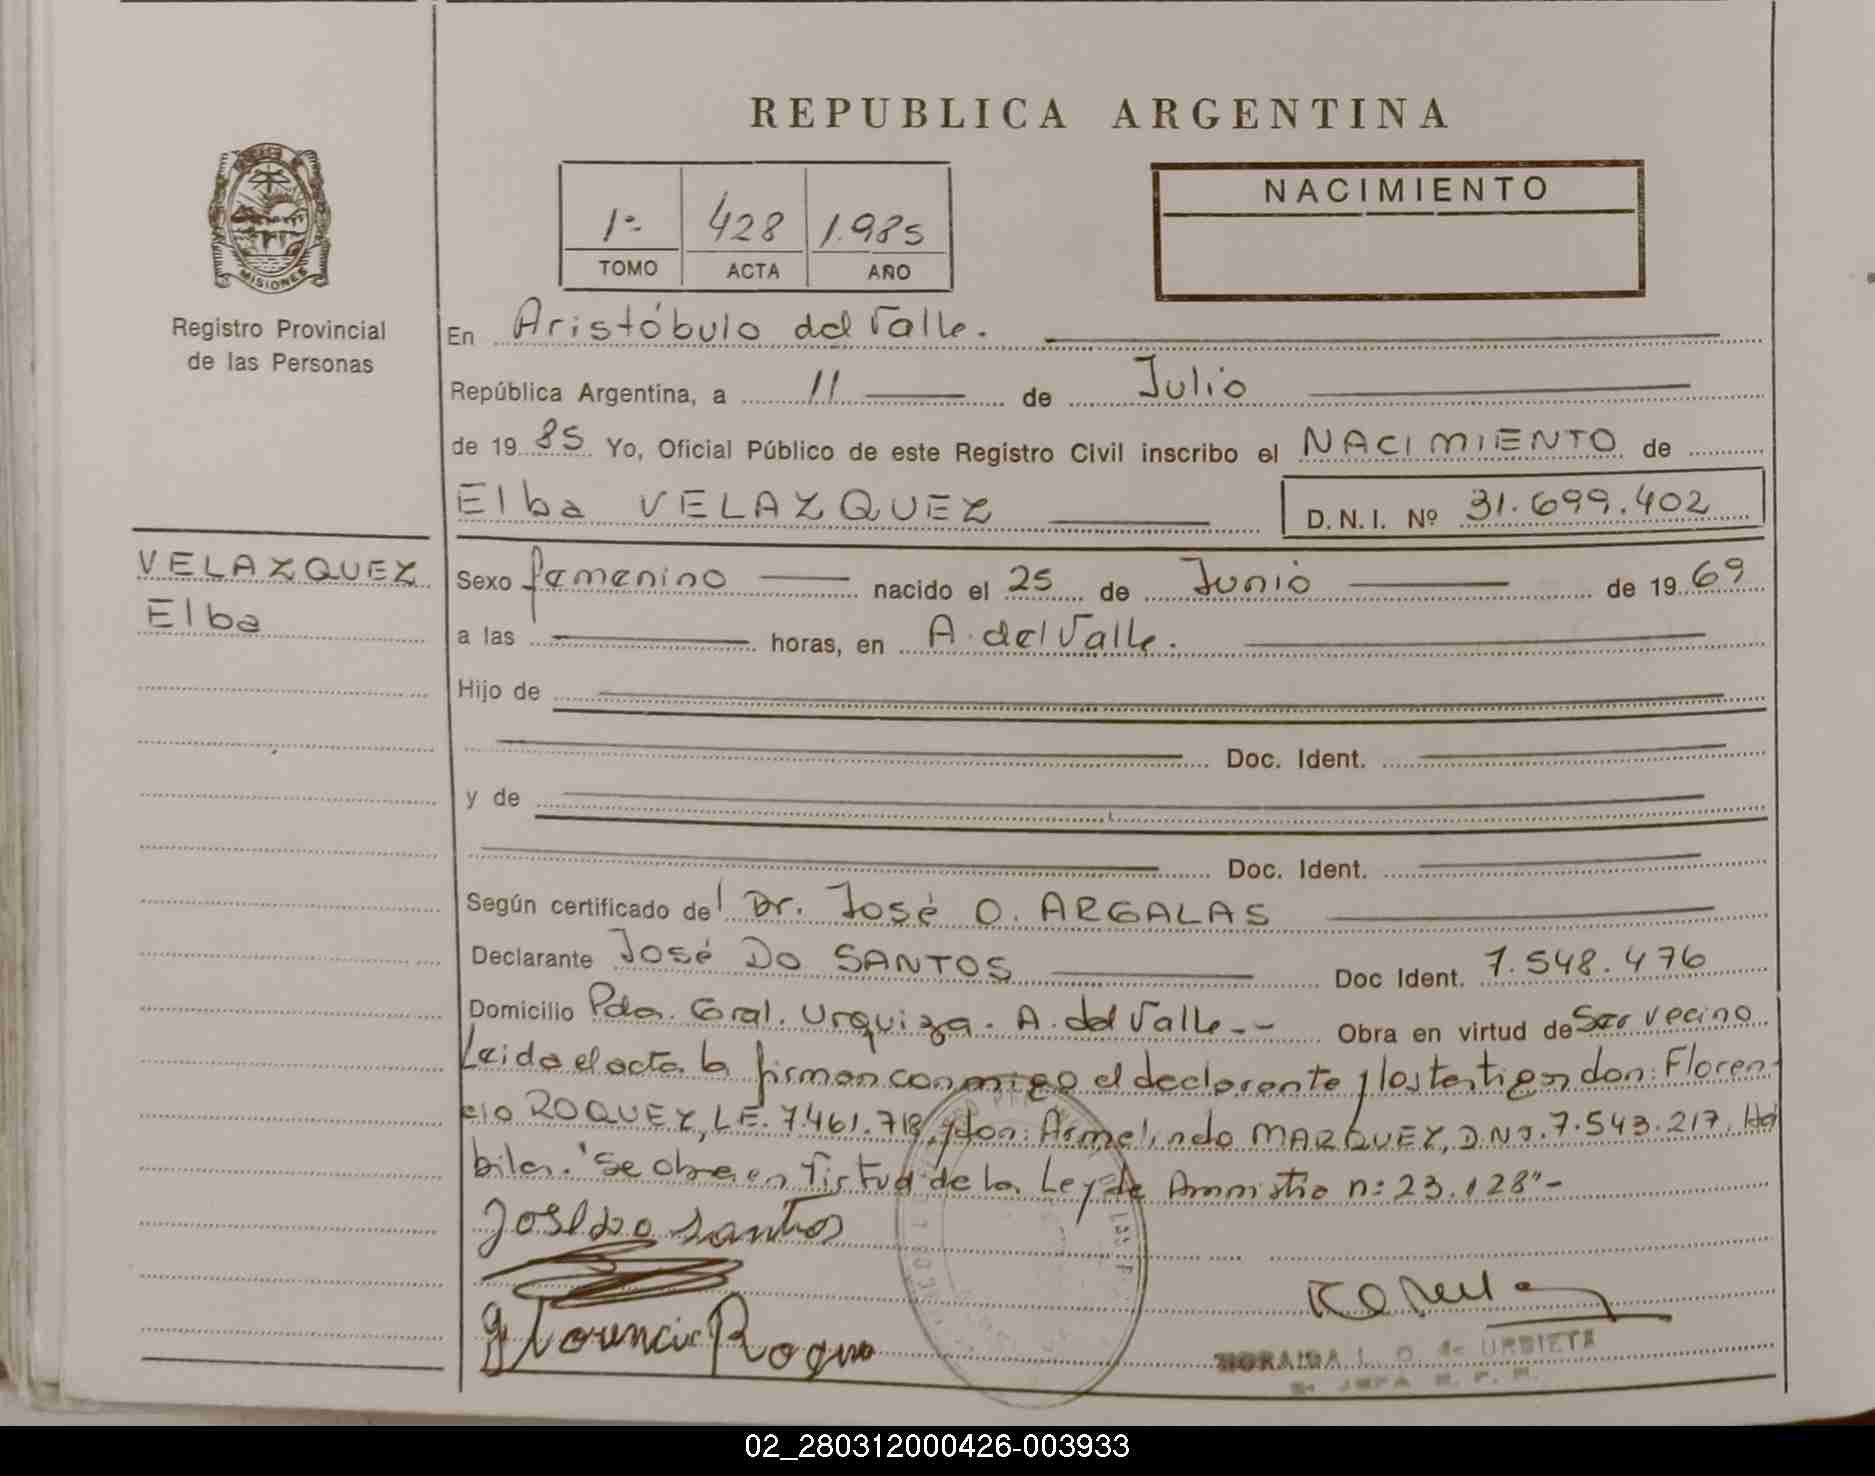 REPUBLICA ARGENTINA
NACIMIENTO
1º 428 1.985
TOMO ACTA AÑO
MISIONES
Registro Provincial
de las Personas
En Aristóbulo del Valle.
República Argentina, a 11 de Julio
de 19 85 Yo, Oficial Público de este Registro Civil inscribo el NACIMIENTO de
Elba VELAZQUEZ D.N.I. Nº 31.699.402
VELAZQUEZ
Elba
Sexo femenino nacido el 25 de Junio de 19 69
a las horas, en A. del Valle.
Hijo de
Doc. Ident.
y de
Doc. Ident.
Según certificado del Dr. José O. ARGALAS
Declarante José DO SANTOS Doc Ident. 7.548.476
Domicilio Pda. Gral. Urquiza. A. del Valle-- Obra en virtud de Ser vecino
Leida el acta la firman conmigo el declarente y los testigos don: Floren-
cio ROQUEZ, L.E. 7.461.718, y don: Armelindo MARQUEZ, D.N.I. 7.543.217. Há
biles. "Se obra en Virtud de la Ley de Amnistia nº 23.128"-
José do Santos
Florencio Roque
L. O. de URBIETA
JEFA R. P. P.
02_280312000426-003933